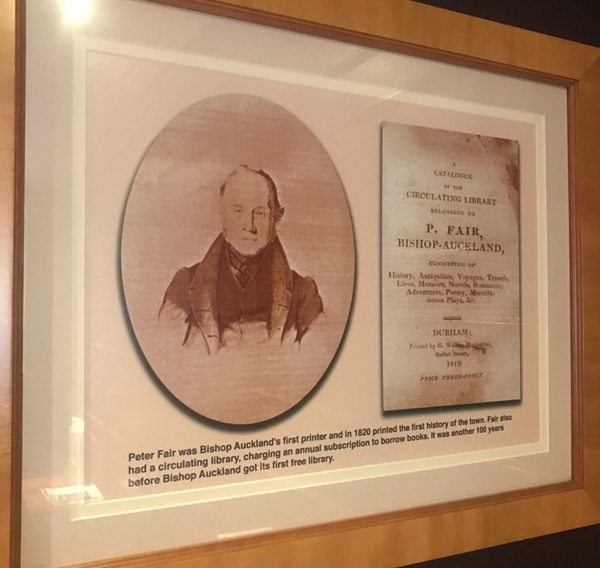 A
CATALOGUE
OF THE
CIRCULATING LIBRARY
BELONGING TO
P. FAIR,
BISHOP-AUCKLAND,
CONSISTING OF
History, Antiquities, Voyages, Travels,
Lives, Memoirs, Novels, Romances,
Adventures, Poetry, Miscella-
neous Plays, &c.
DURHAM:
Printed by G.
Sadler Street,
1819
PRICE THREE-PENCE
Peter Fair was Bishop Auckland's first printer and in 1820 printed the first history of the town. Fair also
had a circulating library, charging an annual subscription to borrow books. It was another 100 years
before Bishop Auckland got its first free library.